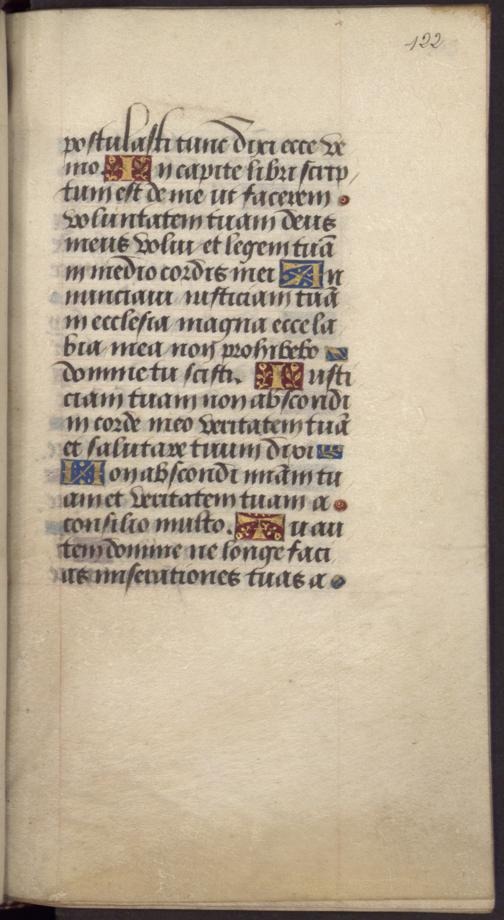 122
postulasti tunc dixi ecce ve
nio. In capite libri scrip
tum est de me ut facerem
voluntatem tuam deus
meus volui et legem tuā
in medio cordis mei An
nunciaui iusticiam tuā
in ecclesia magna ecce la
bia mea non prohibebo
domine tu scisti. Iusti
ciam tuam non abscondi
in corde meo veritatem tuā
et salutare tuum dixi
Non abscondi miām tu
am et veritatem tuam a
consilio multo. Tu au
tem domine ne longe faci
as miserationes tuas a